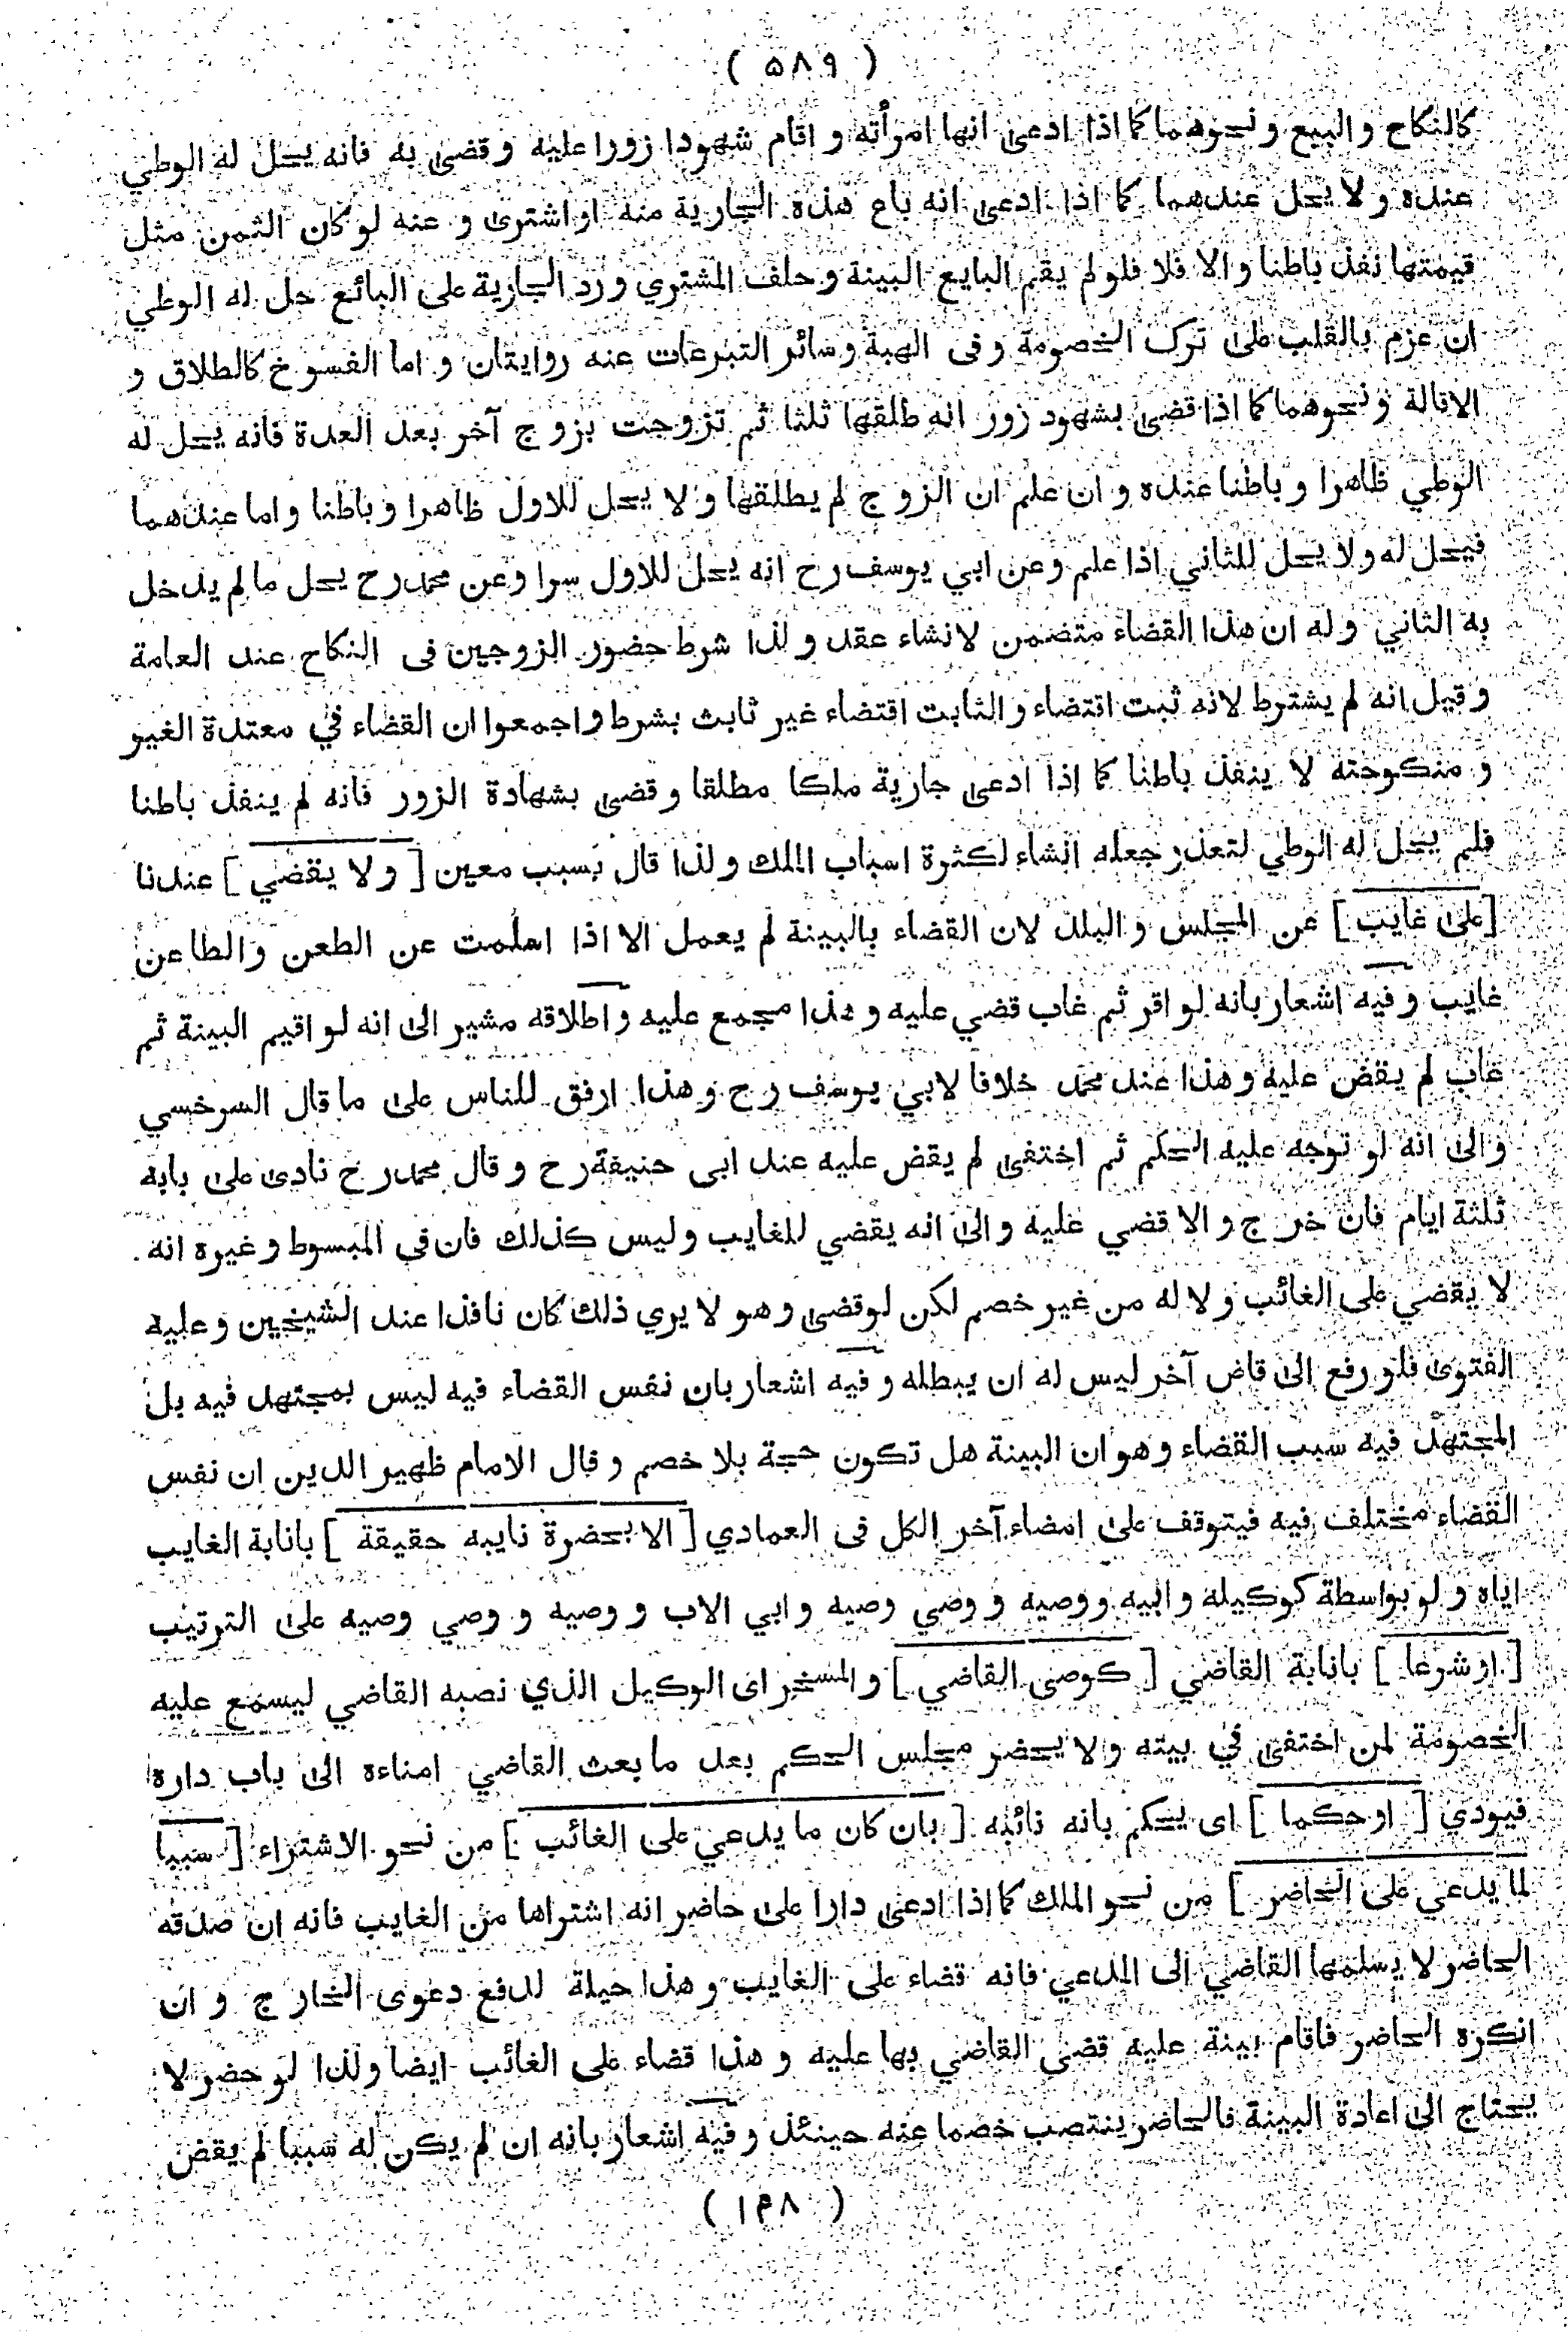 ( ٥٨٩ )
كالنكاح والبيع ونحوهما كما اذا ادعى انها امرأته و اقام شهودا زورا عليه و قضى به فانه يحل له الوطي
عنده و لا يحل عندهما كما اذا ادعى انه باع هذه الجارية منه او اشترى و عنه لو كان الثمن مثل
قيمتها نفذ باطنا والا فلا فلو لم يقم البايع البينة و حلف المشتري ورد الجارية على البائع حل له الوطي
ان عزم بالقلب على ترك الخصومة و فى الهبة وسائر التبرعات عنه روايتان و اما الفسوخ كالطلاق و
الاقالة ونحوهما كما اذا قضى بشهود زور انه طلقها ثلثا ثم تزوجت بزوج آخر بعد العدة فانه يحل له
الوطي ظاهرا و باطنا عنده و ان علم ان الزوج لم يطلقها و لا يحل للاول ظاهرا و باطنا و اما عندهما
فيحل له ولا يحل للثاني اذا علم وعن ابي يوسف رح انه يحل للاول سرا وعن محمد رح يحل ما لم يدخل
به الثاني وله ان هذا القضاء متضمن لانشاء عقد و لذا شرط حضور الزوجين فى النكاح عند العامة
وقيل انه لم يشترط لانه ثبت اقتضاء والثابت اقتضاء غير ثابت بشرط و اجمعوا ان القضاء في معتدة الغير
و منكوحته لا ينفذ باطنا كما اذا ادعى جارية ملكا مطلقا و قضى بشهادة الزور فانه لم ينفذ باطنا
فلم يحل له الوطي لتعذر جعله انشاء لكثرة اسباب الملك ولذا قال بسبب معين [ و لا يقضي ] عندنا
[ على غايب ] عن المجلس و البلد لان القضاء بالبينة لم يعمل الا اذا سلمت عن الطعن والطاعن
غايب و فيه اشعار بانه لو اقر ثم غاب قضي عليه و هذا مجمع عليه و اطلاقه مشير الى انه لو اقيم البينة ثم
غاب لم يقض عليه و هذا عند محمد خلافا لابي يوسف رح و هذا ارفق للناس على ما قال السرخسي
والى انه لو توجه عليه الحكم ثم اختفى لم يقض عليه عند ابى حنيفة رح و قال محمد رح نادى على بابه
ثلثة ايام فان خرج و الا قضي عليه والى انه يقضي للغايب وليس كذلك فان فى المبسوط وغيره انه
لا يقضي على الغائب و لا له من غير خصم لكن لو قضى و هو لا يري ذلك كان نافذا عند الشيخين و عليه
الفتوى فلو رفع الى قاض آخر ليس له ان يبطله و فيه اشعار بان نفس القضاء فيه ليس بمجتهد فيه بل
المجتهد فيه سبب القضاء و هو ان البينة هل تكون حجة بلا خصم و قال الامام ظهير الدين ان نفس
القضاء مختلف فيه فيتوقف على امضاء آخر الكل فى العمادي [ الا بحضرة نايبه حقيقة ] بانابة الغايب
اياه و لو بواسطة كوكيله و ابيه ووصيه و وصي وصيه و ابي الاب و وصيه و وصي وصيه على الترتيب
[ او شرعا ] بانابة القاضي [ كوصى القاضي ] و المسخر اى الوكيل الذي نصبه القاضي ليسمع عليه
الخصومة لمن اختفى في بيته ولا يحضر مجلس الحكم بعد ما بعث القاضي امناءه الى باب داره
فيودي [ او حكما ] اى يحكم بانه نائبه [ بان كان ما يدعي على الغائب ] من نحو الاشتراء [ سببا
لما يدعي على الحاضر ] من نحو الملك كما اذا ادعى دارا على حاضر انه اشتراها من الغايب فانه ان صدقه
الحاضر لا يسلمها القاضي الى المدعي فانه قضاء على الغايب و هذا حيلة لدفع دعوى الخارج و ان
انكره الحاضر فاقام بينة عليه قضى القاضي بها عليه و هذا قضاء على الغائب ايضا ولذا لو حضر لا
يحتاج الى اعادة البينة فالحاضر ينتصب خصما عنه حينئذ و فيه اشعار بانه ان لم يكن له سببا لم يقض
( ١٤٨ )